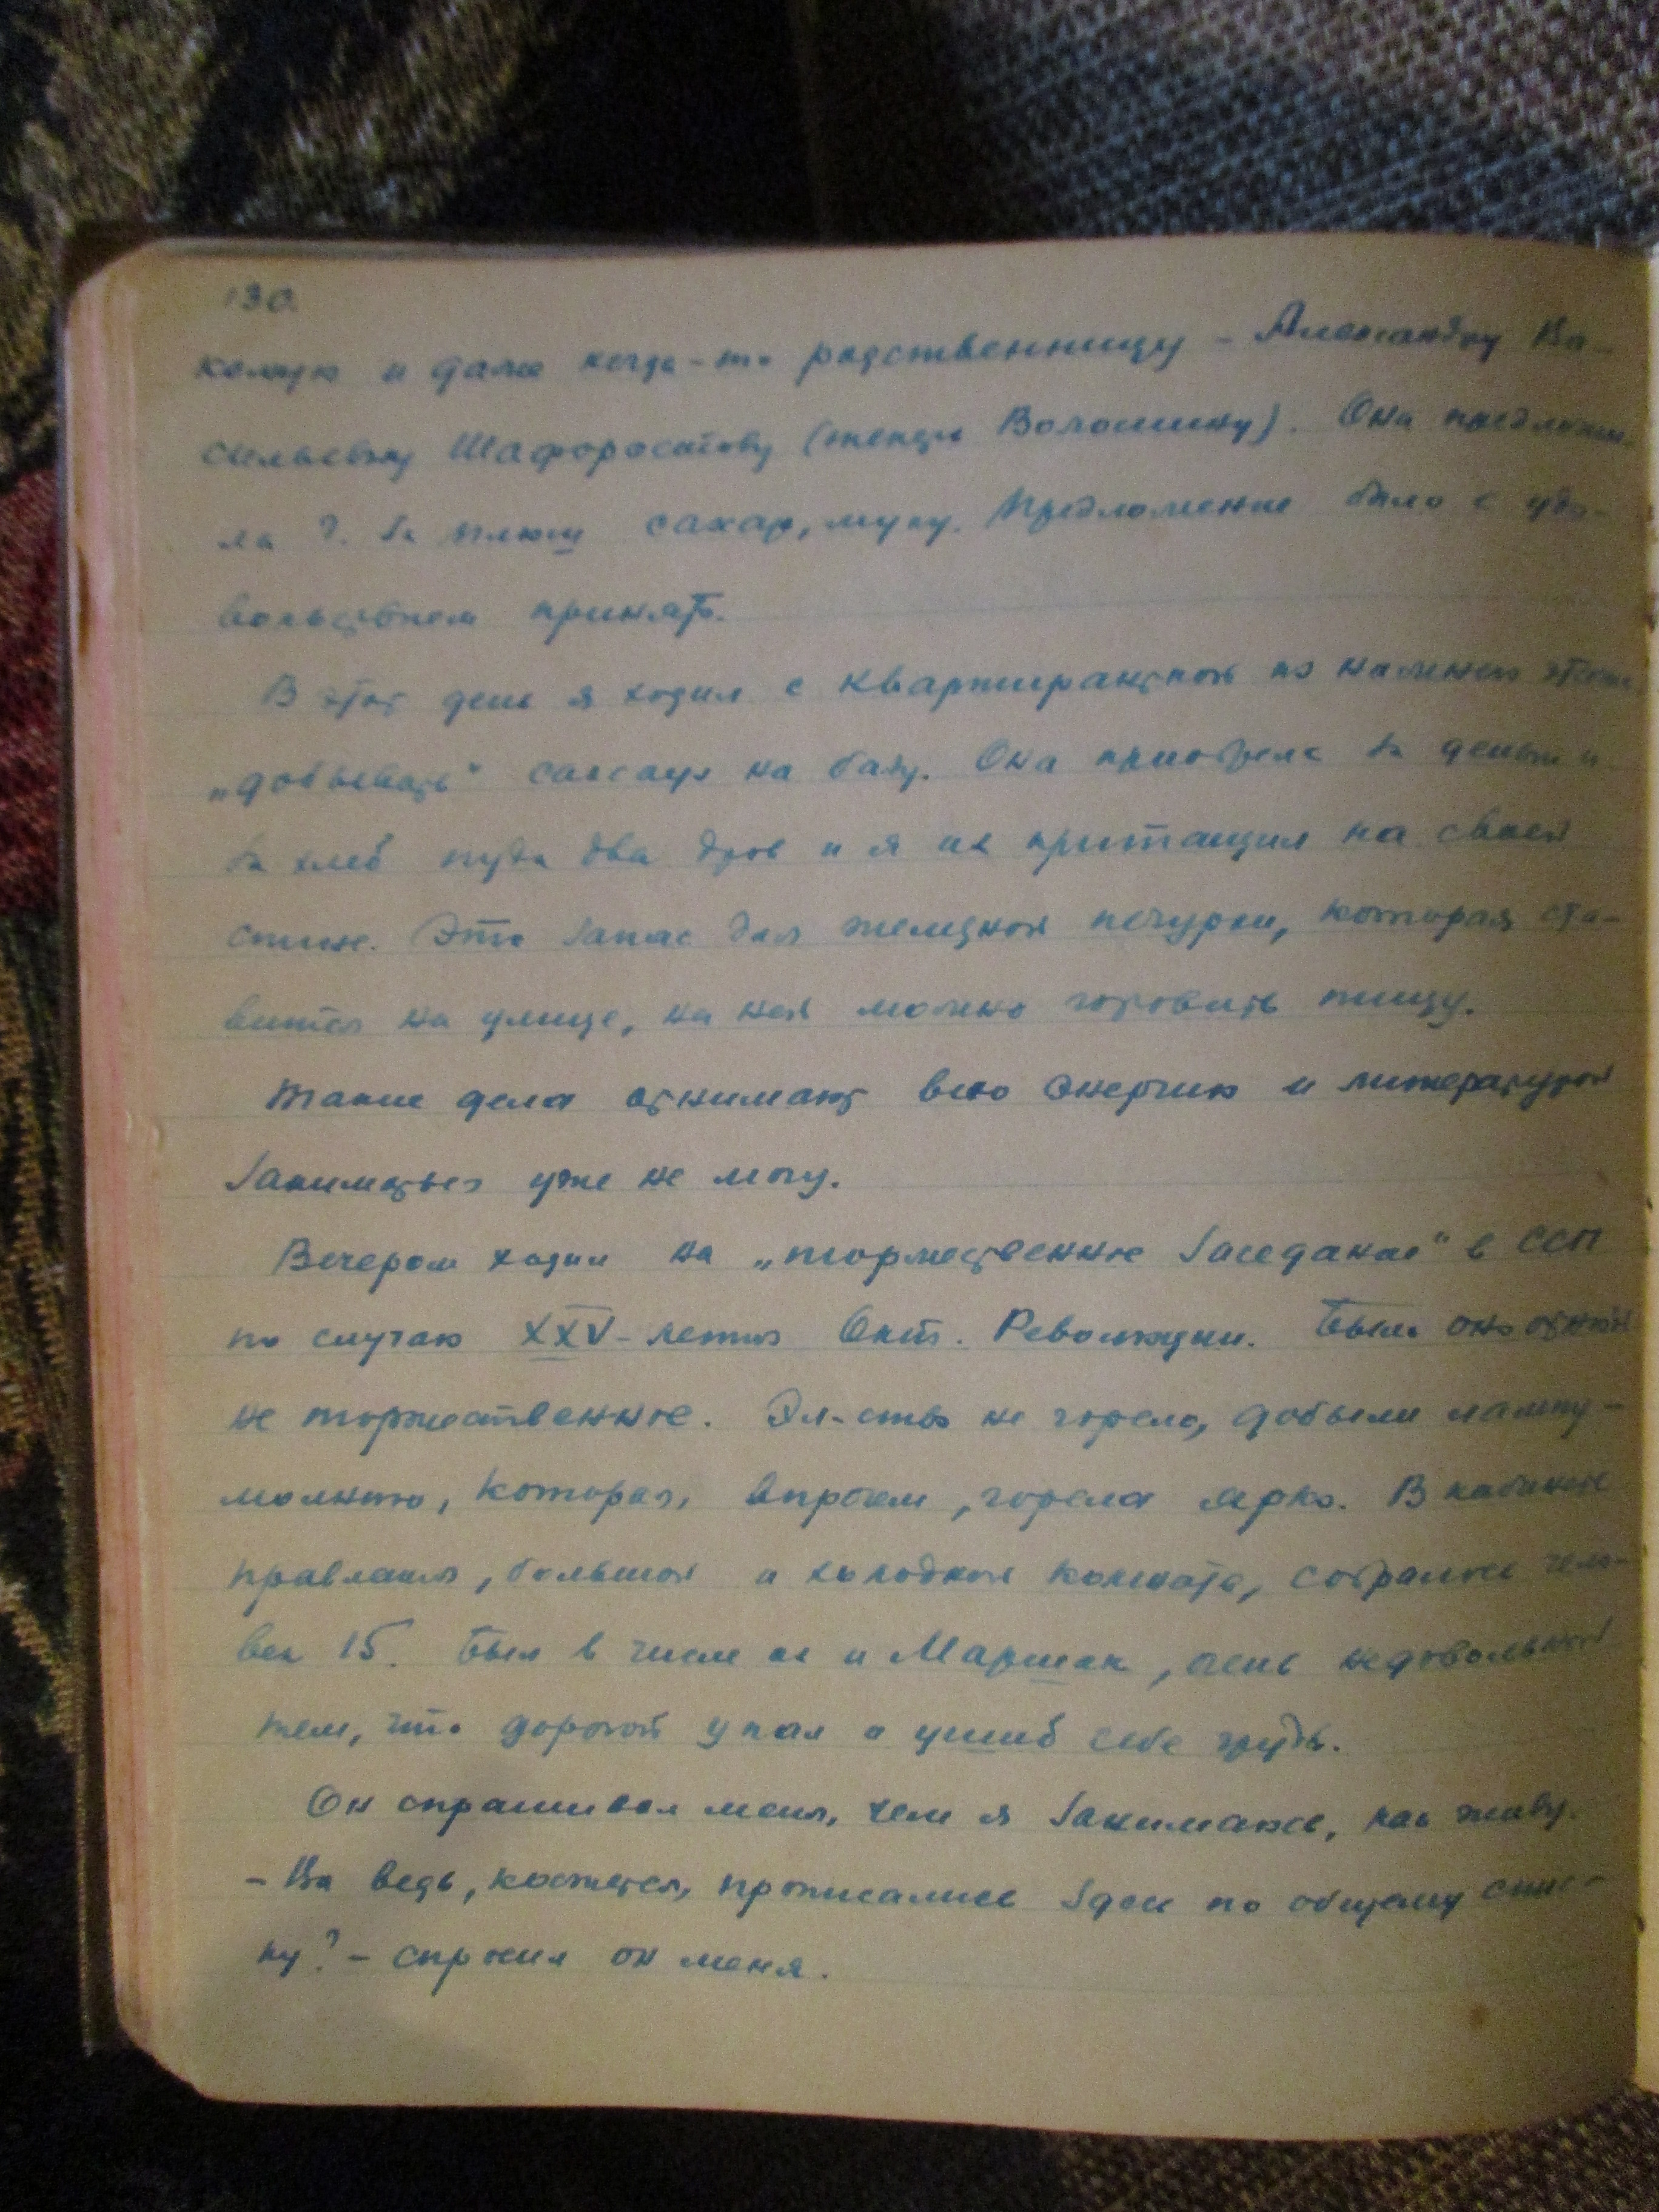 130.
комую и даже когда-то родственницу – Александру Ва-
сильевну Шафоростову (тещу Волошину). Она предложи-
ла ?. За плюш сахар, муку. Предложение было с удо-
вольствием принято.
В этот день я ходил с квартиранткой из нижнего этажа
„добывать" саксаул на базу. Она приобрела за деньги и
за хлеб пуда два дров и я их притащил на своей
спине. Это запас для железной печурки, которая ста-
вится на улице, на ней можно готовить пищу.
Такие дела отнимают всю энергию и литературой
заниматься уже не могу.
Вечером ходил на „торжественное заседание" в ССП
по случаю XXV-летия Окт. Революции. Было оно отнюдь
не торжественное. Эл-ство не горело, добыли лампу-
молнию, которая, впрочем, горела ярко. В кабинете
правления, большой и холодной комнате, собралось чело-
век 15. Был в числе их и Маршак, очень недовольный
тем, что дорогой упал и ушиб себе грудь.
Он спрашивал меня, чем я занимаюсь, как живу.
– Вы ведь, кажется, прописались здесь по общему спис-
ку? – спросил он меня.